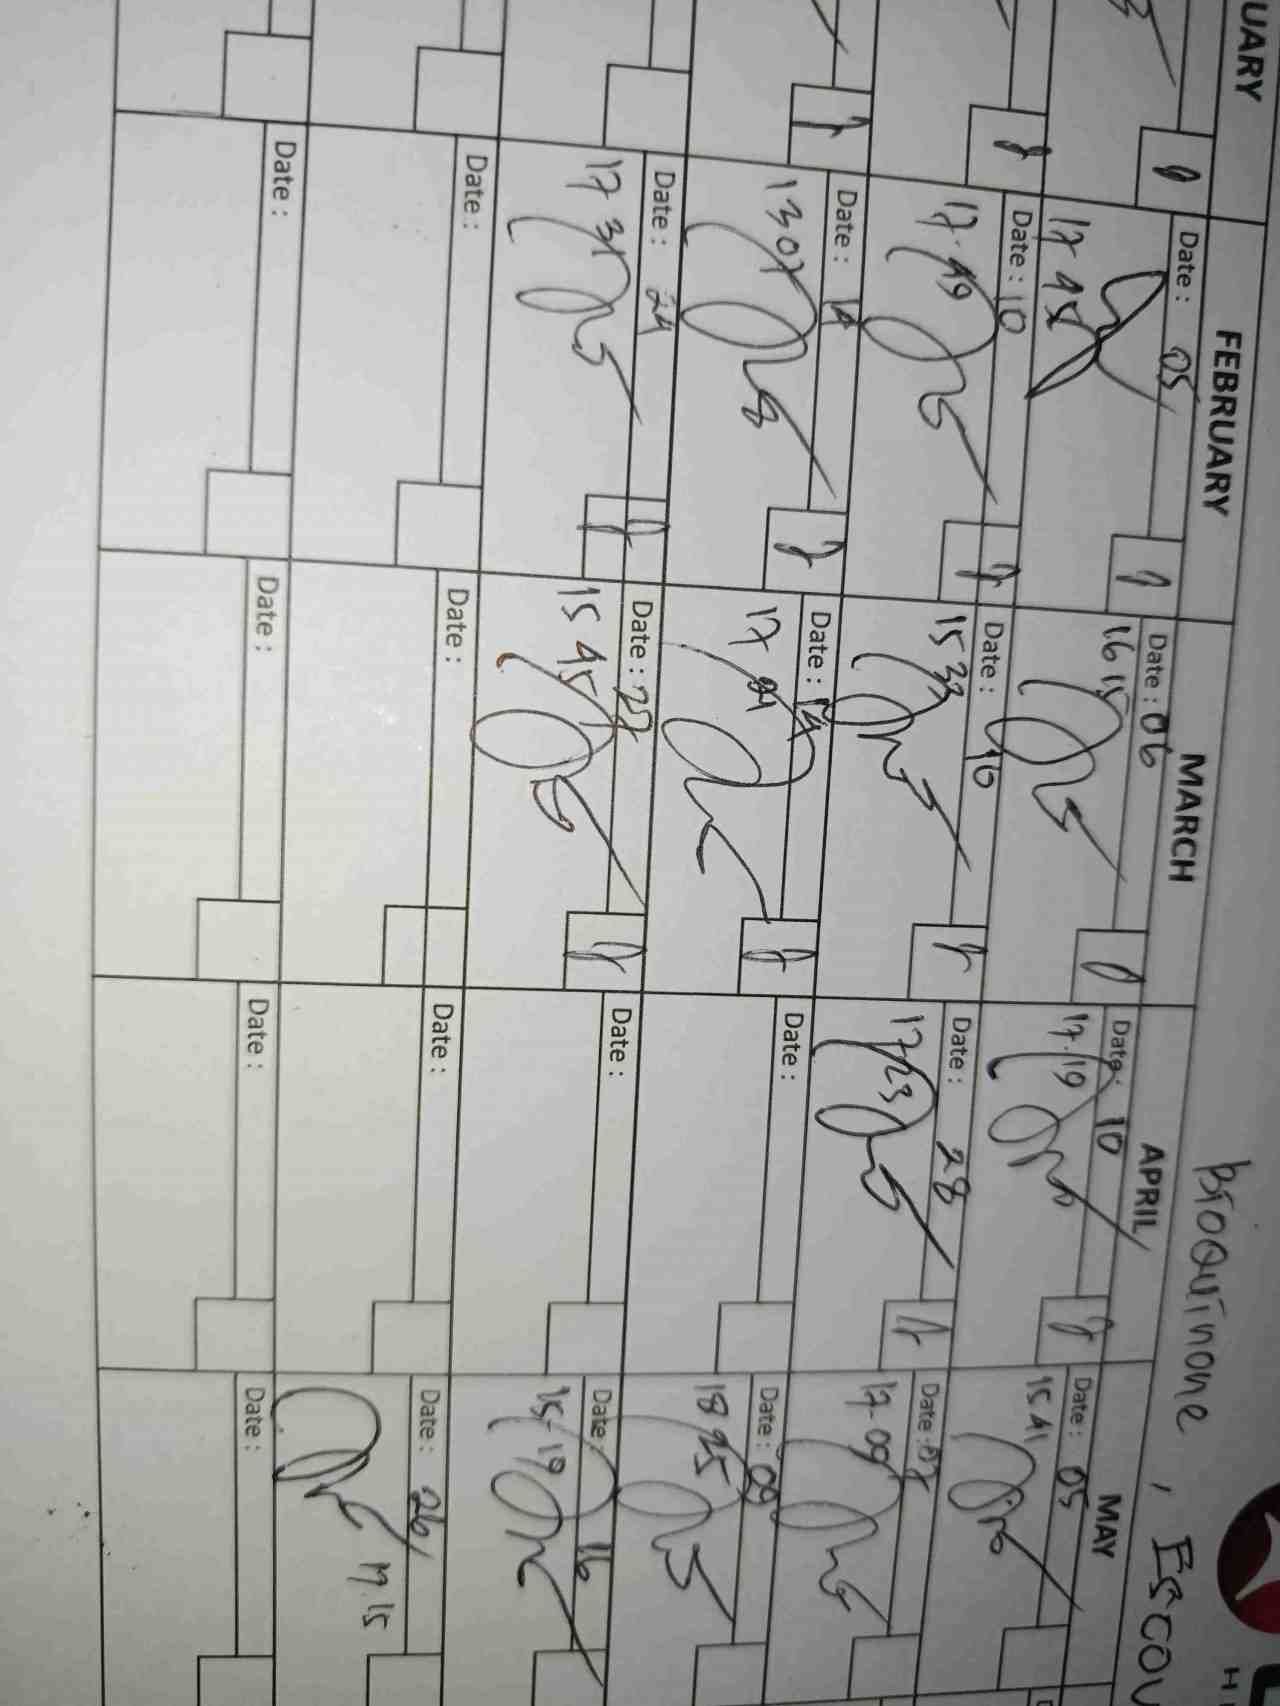 BIOQUINONE, ESCOV
H
UARY FEBRUARY MARCH APRIL MAY
Date: 05
17 45
Date: 06
16 15
Date: 10
17.19
Date: 05
15 41
Date: 10
17.49
Date: 10
15 33
Date: 28
17 23
Date: 07
17-09
Date: 14
13 07
Date: 14
17
Date:
Date: 09
18 25
Date: 24
17 31
Date: 27
15 45
Date:
Date: 16
15-19
Date:
Date:
Date:
Date: 26
17.15
Date:
Date:
Date:
Date: